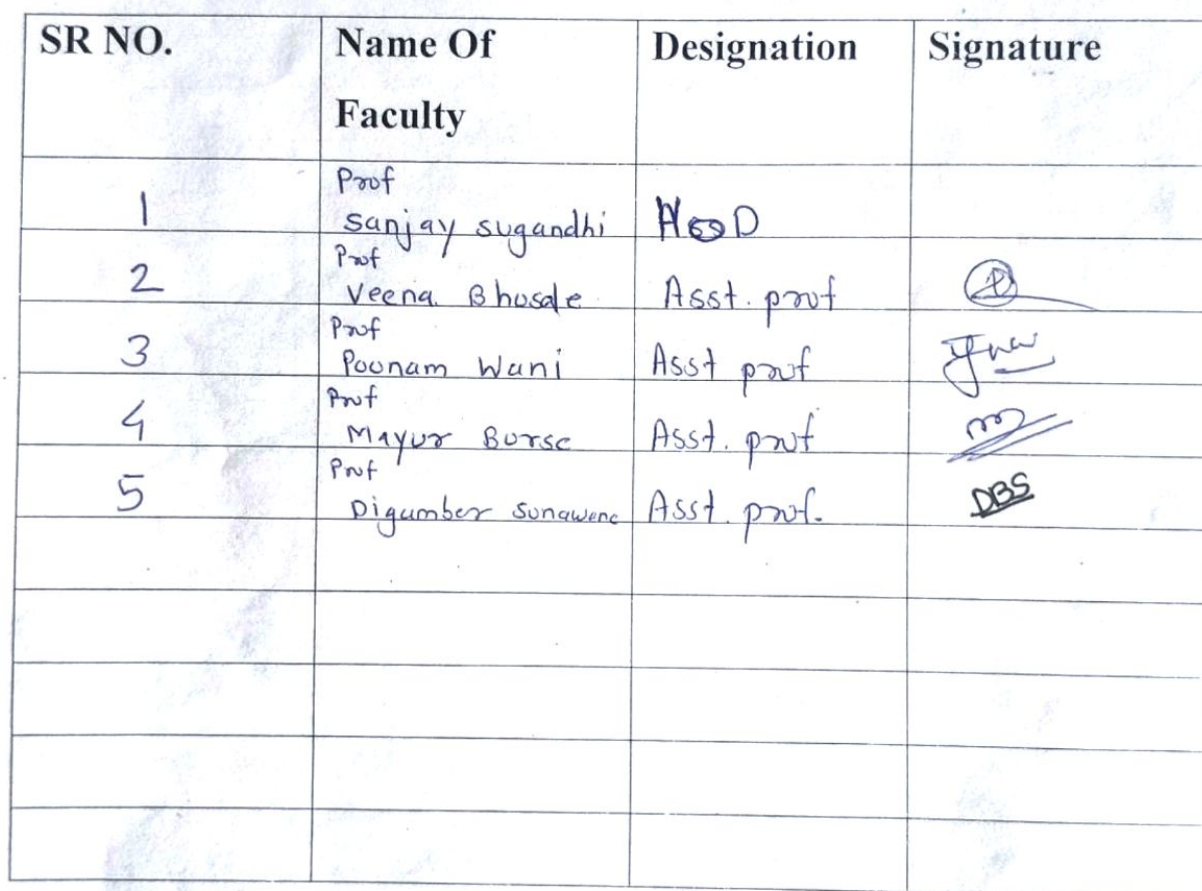 SR NO. Name Of Faculty Designation Signature
1 Prof Sanjay sugandhi HOD
2 Prof Veena Bhusale Asst. prof
3 Prof Poonam Wani Asst prof
4 Prof Mayur Borse Asst. prof
5 Prof Digumber Sonawene Asst. prof. DBS